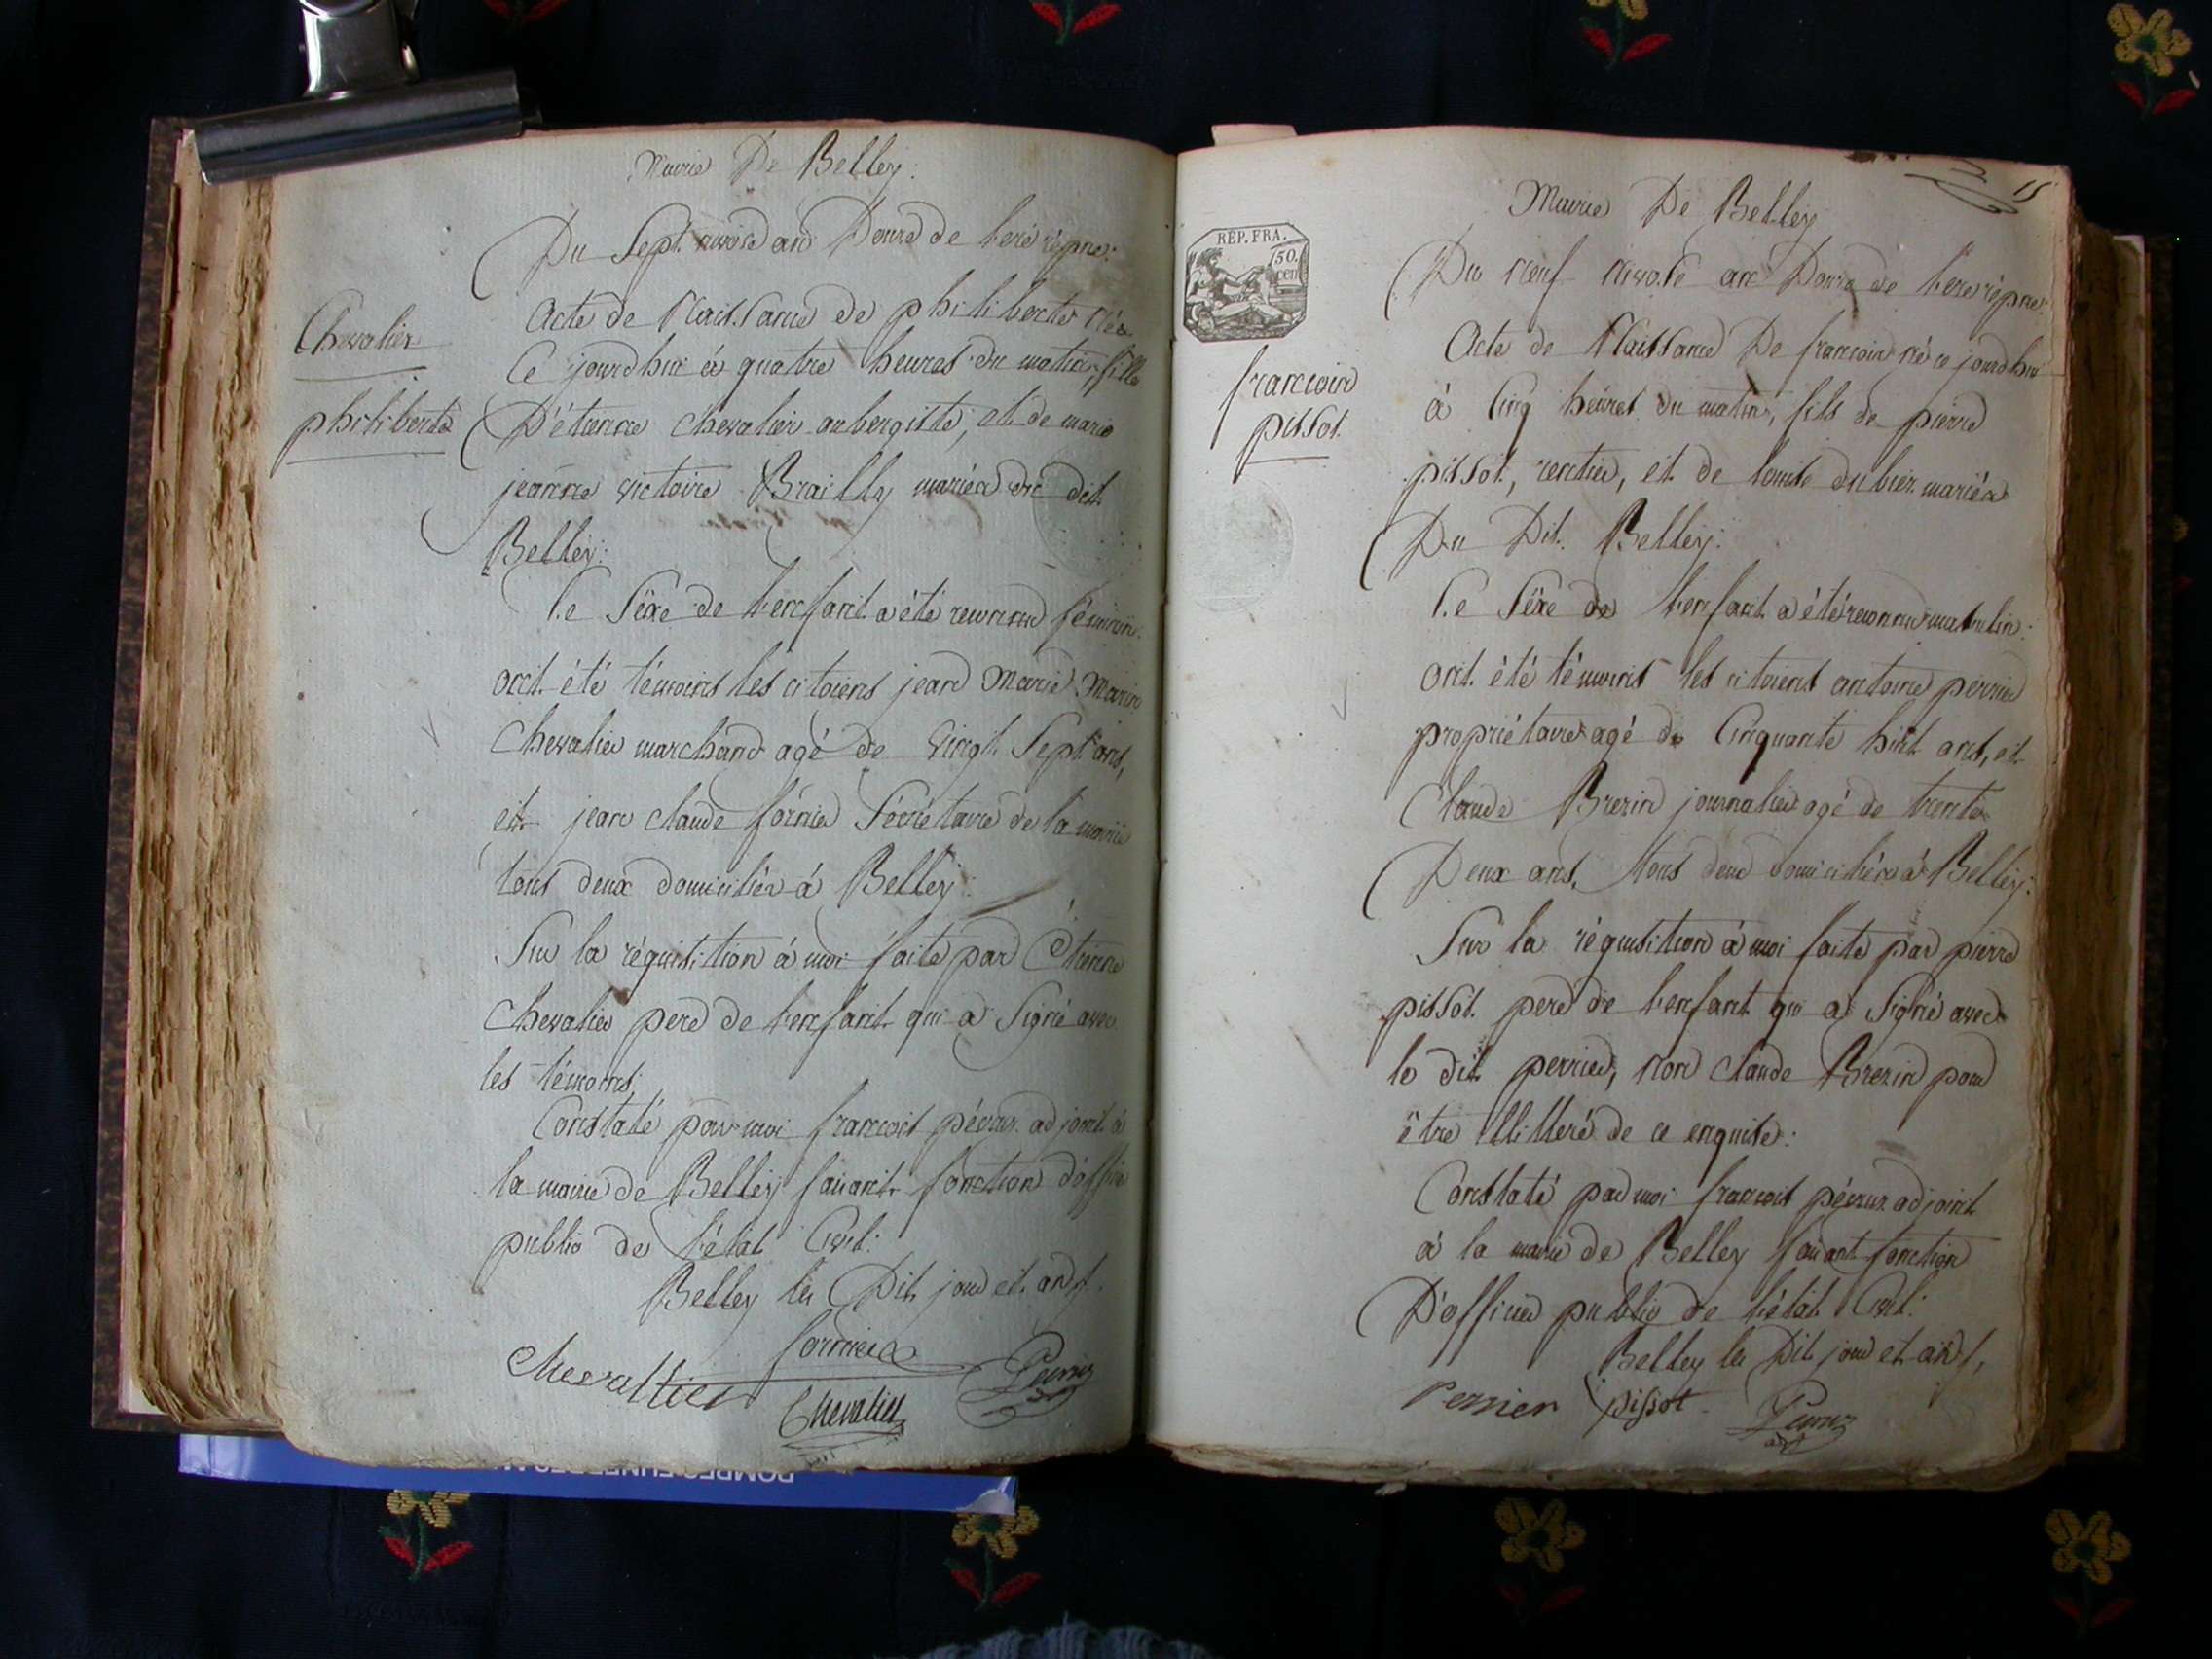 Mairie De Belley:
Du Sept nivose an Douze de l'ere répne:
Chevalier
philiberte
Acte de Naissance de philiberte née
Ce jourdhui à quatre heures du matin, fille
D'étienne chevalier aubergiste, et de marie
jeanne victoire Brailly mariés du dit
Belley:
Le Sèxe de l'enfant a été reconnu féminin:
ont été témoins les citoiens jean Marie Marin
Chevalier marchand agé de vingt Sept ans,
et jean claude fornier Sécrétaire de la mairie
tous deux domiciliés à Belley:
Sur la réquisition à moi faite par Étienne
Chevalier pere de l'enfant qui a Signé avec
les témoins:
Constaté par moi francois adjoint à
la mairie de Belley faisant fonction d'officier
public de l'état Civil:
Belley les Dit jour et an
fornier
Chevallier
Chevalier
15
Mairie De Belley
RÉP. FRA.
50.
cen
francois
pissot.
Du Neuf Nivose an Douze de l'ere répne:
Acte de Naissance De francois né ce jourdhui
à Cinq heures du matin, fils de pierre
pissot, rentier, et de louise dubier mariés
Du Dit Belley:
Le Sèxe de l'enfant a été reconnu masculin:
ont été témoins les citoiens antoine perrier
propriétaire agé de Cinquante huit ans, et
Claude Brezin journalier agé de trente
Deux ans, tous deux domiciliés à Belley:
Sur la réquisition à moi faite par pierre
pissot pere de l'enfant qui a Signé avec
le dit perrier, Non claude Brezin pour
être illitteré de ce enquis:
Constaté par moi francois adjoint
à la mairie de Belley faisant fonction
D'officier public de l'état Civil:
Belley les Dit jour et an
Perrier pissot